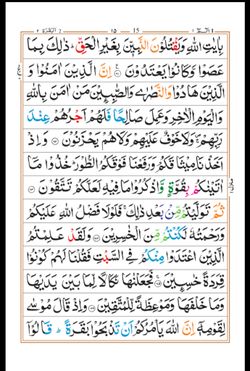 بِاٰيٰتِ اللّٰهِ وَيَقْتُلُوْنَ النَّبِيّٖنَ بِغَيْرِ الْحَقِّ ؕ ذٰلِكَ بِمَا
عَصَوْا وَّكَانُوْا يَعْتَدُوْنَ ۝ اِنَّ الَّذِيْنَ اٰمَنُوْا وَ
الَّذِيْنَ هَادُوْا وَالنَّصٰرٰى وَالصّٰبِـِٕيْنَ مَنْ اٰمَنَ بِاللّٰهِ
وَالْيَوْمِ الْاٰخِرِ وَعَمِلَ صَالِحًا فَلَهُمْ اَجْرُهُمْ عِنْدَ
رَبِّهِمْ ۚ وَلَا خَوْفٌ عَلَيْهِمْ وَلَا هُمْ يَحْزَنُوْنَ ۝ وَاِذْ
اَخَذْنَا مِيْثَاقَكُمْ وَرَفَعْنَا فَوْقَكُمُ الطُّوْرَ ؕ خُذُوْا مَآ
اٰتَيْنٰكُمْ بِقُوَّةٍ وَّاذْكُرُوْا مَا فِيْهِ لَعَلَّكُمْ تَتَّقُوْنَ ۝
ثُمَّ تَوَلَّيْتُمْ مِّنْۢ بَعْدِ ذٰلِكَ ۚ فَلَوْلَا فَضْلُ اللّٰهِ عَلَيْكُمْ
وَرَحْمَتُهٗ لَكُنْتُمْ مِّنَ الْخٰسِرِيْنَ ۝ وَلَقَدْ عَلِمْتُمُ
الَّذِيْنَ اعْتَدَوْا مِنْكُمْ فِى السَّبْتِ فَقُلْنَا لَهُمْ كُوْنُوْا
قِرَدَةً خٰسِـِٕيْنَ ۝ فَجَعَلْنٰهَا نَكَالًا لِّمَا بَيْنَ يَدَيْهَا
وَمَا خَلْفَهَا وَمَوْعِظَةً لِّلْمُتَّقِيْنَ ۝ وَاِذْ قَالَ مُوْسٰى
لِقَوْمِهٖٓ اِنَّ اللّٰهَ يَاْمُرُكُمْ اَنْ تَذْبَحُوْا بَقَرَةً ؕ قَالُوْٓا